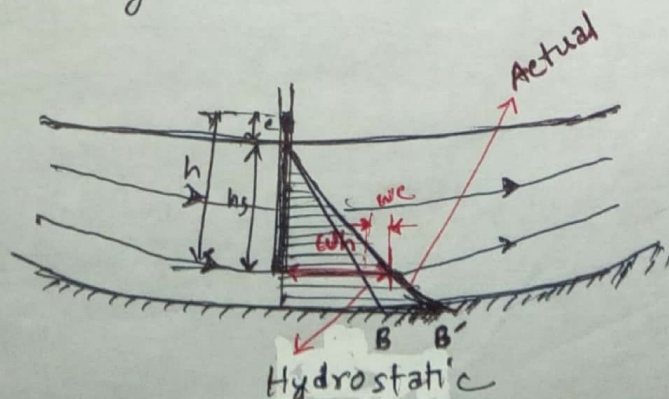 Actual
c
h
hs
wc
wh
B B'
Hydrostatic